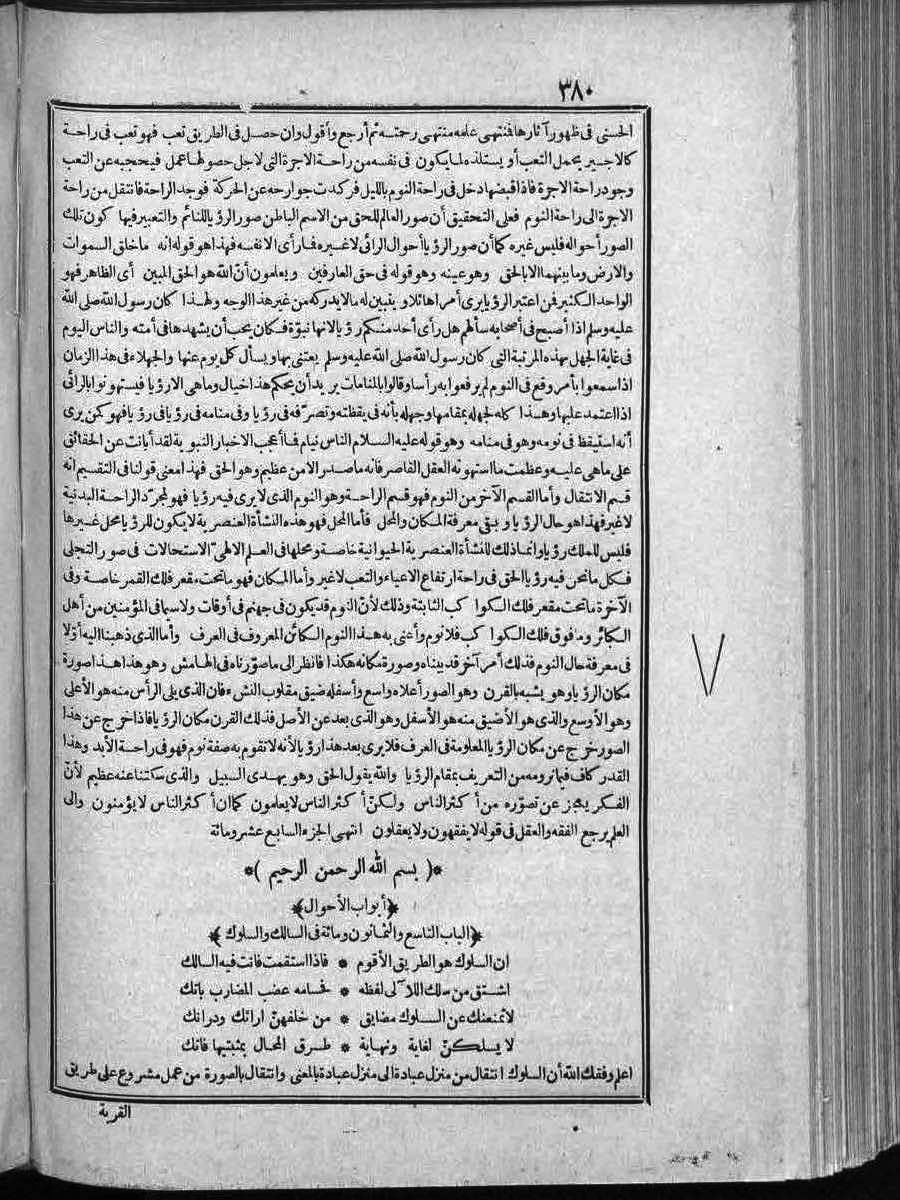 ٣٨٠
الحسنى فى ظهور آثارها فنتهى علمه منتهى رحمته ثم أرجع وأقول وان حصل فى الطريق تعب فهو تعب فى راحة
كالاجير يحمل التعب أو يستلذه لما يكون فى نفسه من راحة الاجرة التى لاجل حصولها عمل فيحجبه عن التعب
وجود راحة الاجرة فاذا قبضها دخل فى راحة النوم بالليل فركدت جوارحه عن الحركة فوجد الراحة فانتقل من راحة
الاجرة الى راحة النوم فعلى التحقيق أن صور العالم للحق من الاسم الباطن صور الرؤيا للنائم والتعبير فيها كون تلك
الصور أحواله فليس غيره كما أن صور الرؤيا أحوال الرائى لا غيره فما رأى الا نفسه فهذا هو قوله انه ما خلق السموات
والارض وما بينهما الا بالحق وهو عينه وهو قوله فى حق العارفين ويعلمون أنّ الله هو الحق المبين أى الظاهر فهو
الواحد الكثير فمن اعتبر الرؤيا يرى أمرا هائلا ويتبين له ما لا يدركه من غير هذا الوجه ولهذا كان رسول الله صلى الله
عليه وسلم اذا أصبح فى أصحابه سألهم هل رأى أحد منكم رؤيا لانها نبوّة فكان يحب أن يشهدها فى أمته والناس اليوم
فى غاية الجهل بهذه المرتبة التى كان رسول الله صلى الله عليه وسلم يعتنى بها ويسأل كل يوم عنها والجهلاء فى هذا الزمان
اذا سمعوا بأمر وقع فى النوم لم يرفعوا به رأسا وقالوا بالمنامات يريد أن يحكم هذا خيال وما هى الا رؤيا فيستهونوا بالرائى
اذا اعتمد عليها وهذا كله لجهله بمقامها وجهله بأنه فى يقظته وتصرّفه فى رؤيا وفى منامه فى رؤيا فى رؤيا فهو كمن يرى
أنه استيقظ فى نومه وهو فى منامه وهو قوله عليه السلام الناس نيام فما أعجب الاخبار النبوية لقد أبانت عن الحقائق
على ماهى عليه وعظمت ما استهونه العقل القاصر فانه ما صدر الا من عظيم وهو الحق فهذا معنى قولنا فى التقسيم انه
قسم الانتقال وأما القسم الآخر من النوم فهو قسم الراحة وهو النوم الذى لا يرى فيه رؤيا فهو لمجرّد الراحة البدنية
لا غير فهذا هو حال الرؤيا وبقى معرفة المكان والمحل فأما المحل فهو هذه النشأة العنصرية لا يكون للرؤيا محل غيرها
فليس للملك رؤيا وانما ذلك للنشأة العنصرية الحيوانية خاصة ومحلها فى العلم الالهىّ الاستحالات فى صور التجلى
فكل ما نحن فيه رؤيا الحق فى راحة ارتفاع الاعياء والتعب لا غير وأما المكان فهو ما تحت مقعر فلك القمر خاصة وفى
الآخرة ما تحت مقعر فلك الكواكب الثابتة وذلك لأنّ النوم قد يكون فى جهنم فى أوقات ولا سيما فى المؤمنين من أهل
الكبائر وما فوق فلك الكواكب فلا نوم وأعنى به هذا النوم الكائن المعروف فى العرف وأما الذى ذهبنا اليه أوّلا
فى معرفة حال النوم فذلك أمر آخر قد بيناه وصورة مكانه هكذا فانظر الى ما صوّرناه فى الهامش وهو هذا هذا صورة
مكان الرؤيا وهو يشبه بالقرن وهو الصور أعلاه واسع وأسفله ضيق مقلوب النشء فان الذى يلى الرأس منه هو الأعلى
وهو الأوسع والذى هو الأضيق منه هو الأسفل وهو الذى بعد عن الأصل فذلك القرن مكان الرؤيا فاذا خرج عن هذا
الصور خرج عن مكان الرؤيا المعلومة فى العرف فلا يرى بعد هذا رؤيا لأنه لا تقوم به صفة نوم فهو فى راحة الأبد وهذا
القدر كاف فيما نرومه من التعريف بمقام الرؤيا والله يقول الحق وهو يهدى السبيل والذى سكتنا عنه عظيم لأنّ
الفكر يعجز عن تصوّره من أكثر الناس ولكنّ أكثر الناس لا يعلمون كما ان أكثر الناس لا يؤمنون والى
العلم يرجع الفقه والعقل فى قوله لا يفقهون ولا يعقلون انتهى الجزء السابع عشر ومائة
*( بسم الله الرحمن الرحيم )*
﴿أبواب الأحوال﴾
﴿الباب التاسع والثمانون ومائة فى السالك والسلوك﴾
ان السلوك هو الطريق الأقوم * فاذا استقمت فانت فيه السالك
اشتق من سلك اللآلى لفظه * فحسامه عضب المضارب باتك
لا تمنعنك عن السلوك مضايق * من خلفهنّ أرائك ودرانك
لا يسلكنّ لغاية ونهاية * طرق المحال بمثبتيها فاتك
اعلم وفقك الله أن السلوك انتقال من منزل عبادة الى منزل عبادة بالمعنى وانتقال بالصورة من عمل مشروع على طريق
القربة